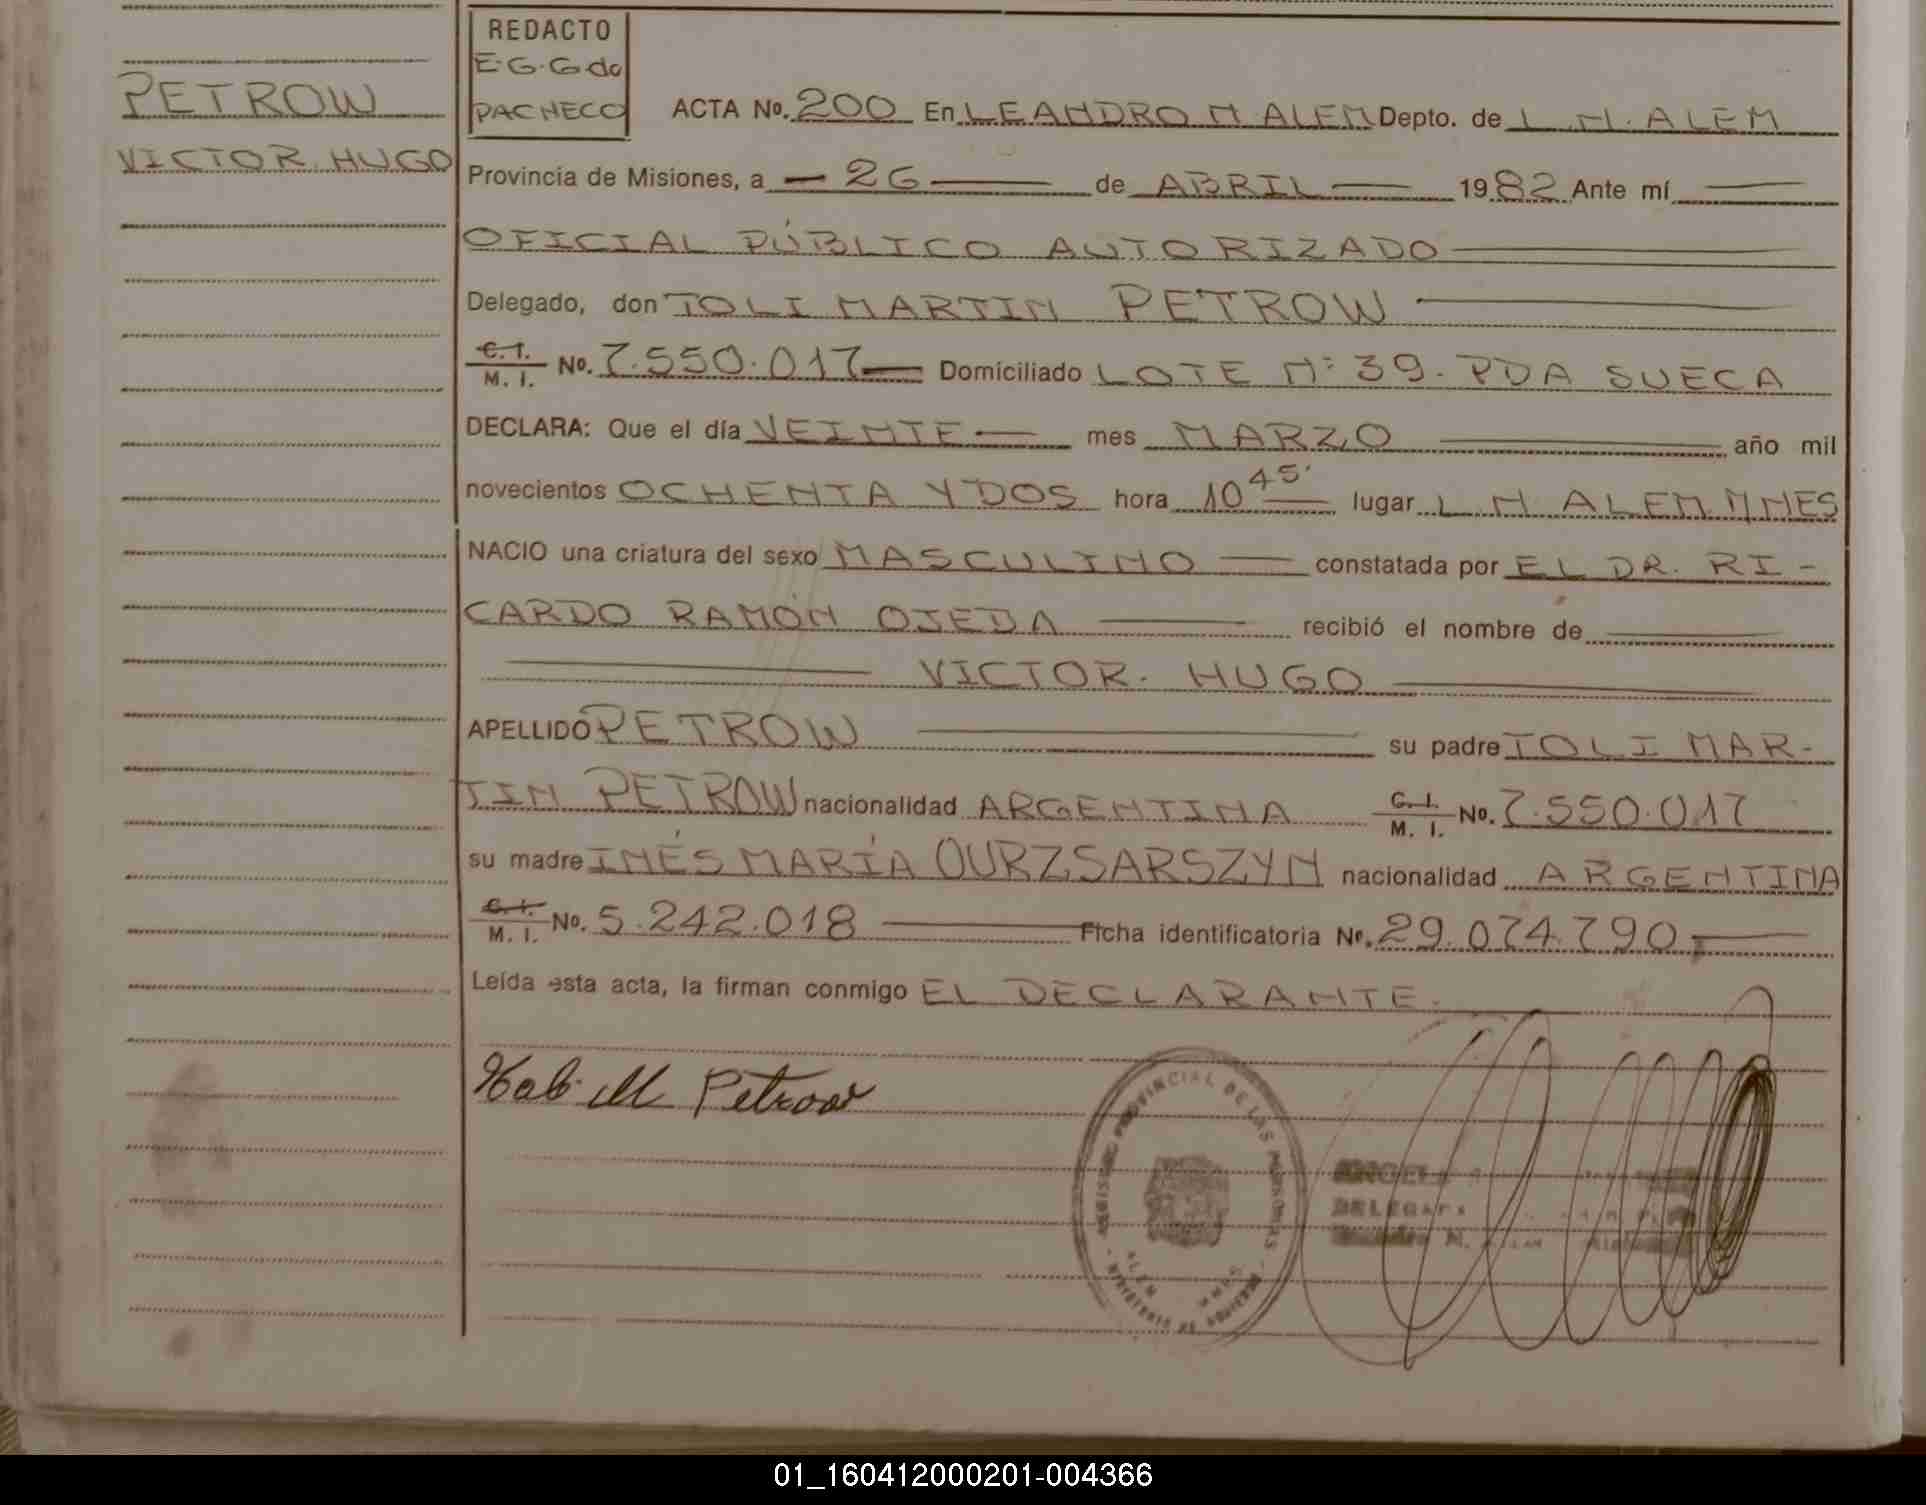 PETROW
VICTOR. HUGO
REDACTO
E.G.G de
PACHECO
ACTA No. 200 En LEANDRO N ALEM Depto. de L. N. ALEM
Provincia de Misiones, a — 26 — de ABRIL — 1982 Ante mí —
OFICIAL PÚBLICO AUTORIZADO —
Delegado, don TOLI MARTIN PETROW —
C. I. / M. I. No. 7.550.017 — Domiciliado LOTE Nº 39. PDA SUECA
DECLARA: Que el día VEINTE — mes MARZO — año mil
novecientos OCHENTA Y DOS hora 10 45' lugar L. N ALEM. MNES
NACIO una criatura del sexo MASCULINO — constatada por EL DR. RI-
CARDO RAMÓN OJEDA — recibió el nombre de —
— VICTOR. HUGO —
APELLIDO PETROW — su padre TOLI MAR-
TIN PETROW nacionalidad ARGENTINA C. I. / M. I. No. 7.550.017
su madre INÉS MARÍA OURZSARSZYN nacionalidad ARGENTINA
C. I. / M. I. No. 5.242.018 — Ficha identificatoria No. 29.074.790. —
Leída esta acta, la firman conmigo EL DECLARANTE.
M Petrow
PROVINCIAL DE LAS PERSONAS
ALEM
MNES
01_160412000201-004366